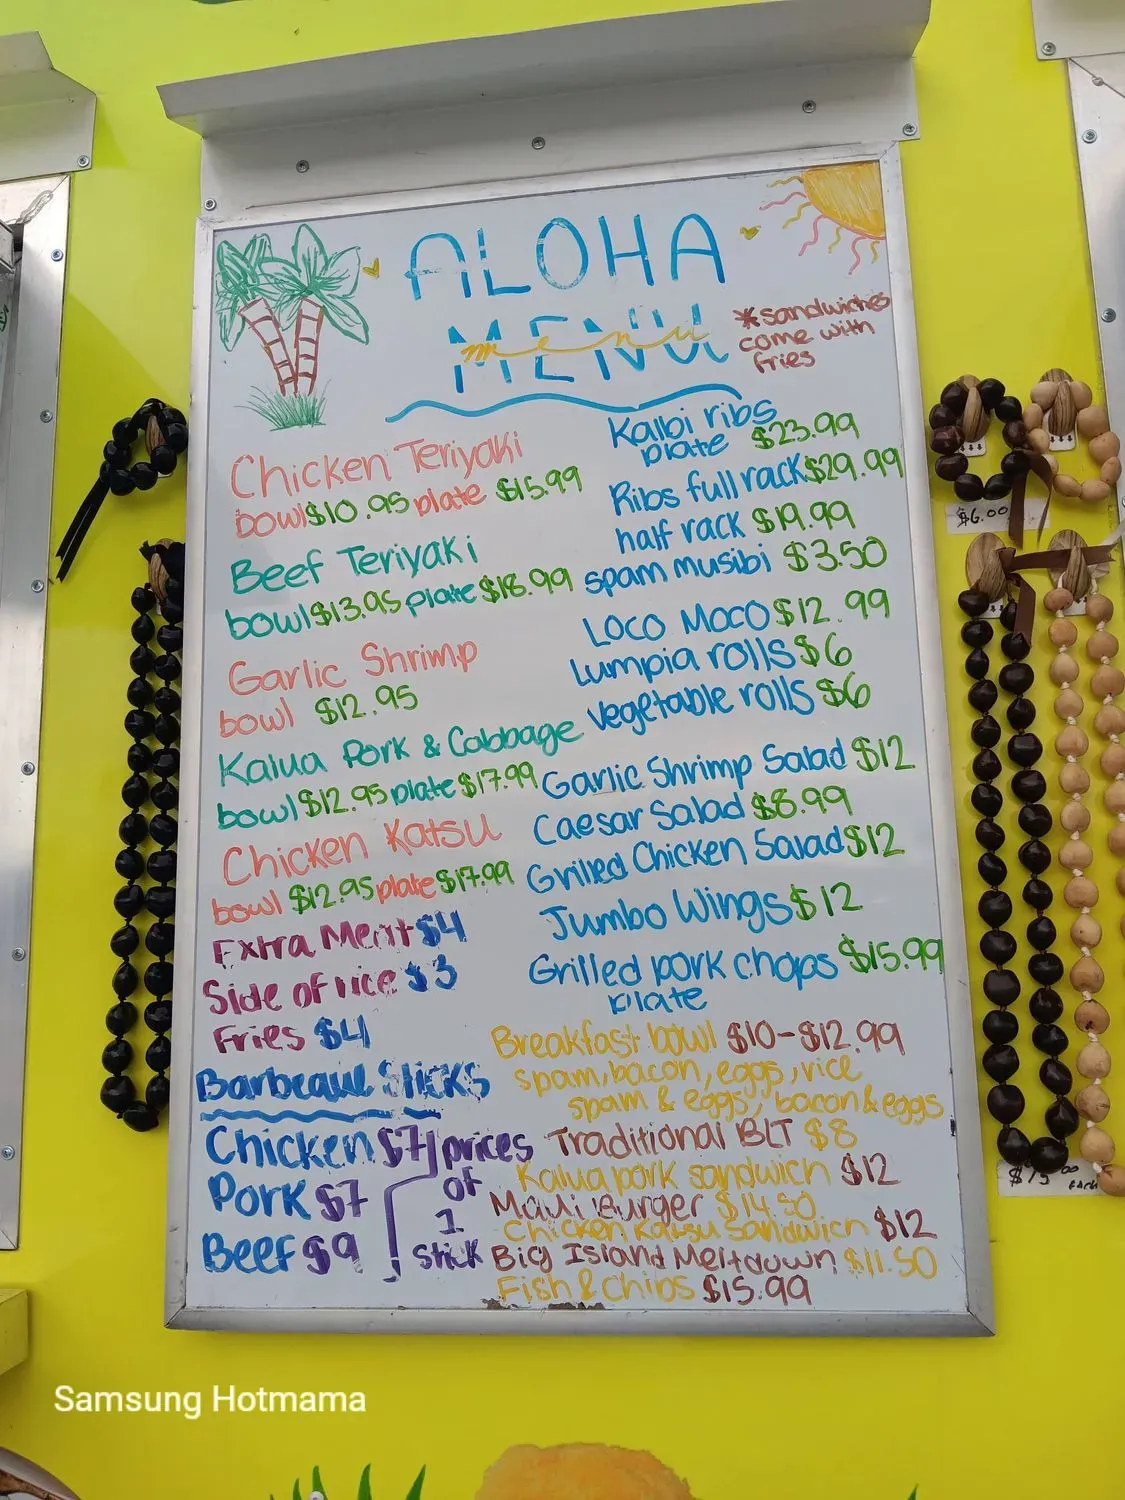 ALOHA
MENU
menu
*sandwiches
come with
fries
Chicken Teriyaki
bowl $10.95 plate $15.99
Beef Teriyaki
bowl $13.95 plate $18.99
Garlic Shrimp
bowl $12.95
Kalua Pork & Cabbage
bowl $12.95 plate $17.99
Chicken Katsu
bowl $12.95 plate $17.99
Extra Meat $4
Side of rice $3
Fries $4
Barbeque Sticks
Chicken $7
Pork $7
Beef $9
prices
of
1
stick
Kalbi ribs
plate $23.99
Ribs full rack $29.99
half rack $19.99
spam musibi $3.50
Loco Moco $12.99
Lumpia rolls $6
Vegetable rolls $6
Garlic Shrimp Salad $12
Caesar Salad $8.99
Grilled Chicken Salad $12
Jumbo Wings $12
Grilled pork chops $15.99
plate
Breakfast bowl $10-$12.99
spam, bacon, eggs, rice
spam & eggs, bacon & eggs
Traditional BLT $8
Kalua pork sandwich $12
Maui Burger $14.50
Chicken Katsu Sandwich $12
Big Island Meltdown $11.50
Fish & Chips $15.99
$6.00
Samsung Hotmama